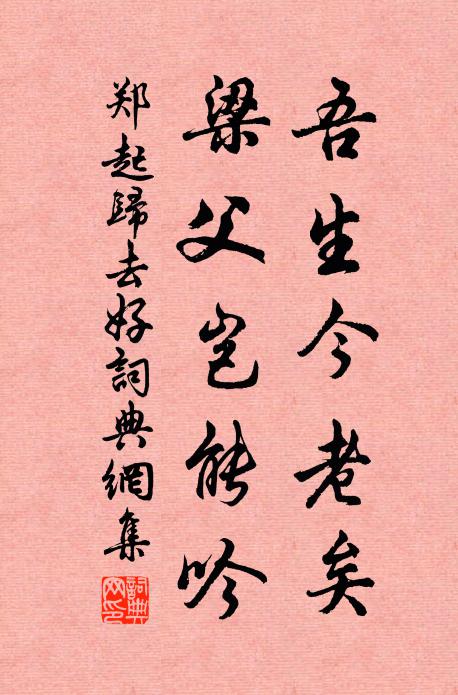 吾生今老矣
梁父岂能吟
郑起歸去好詞典網集
詞典網印